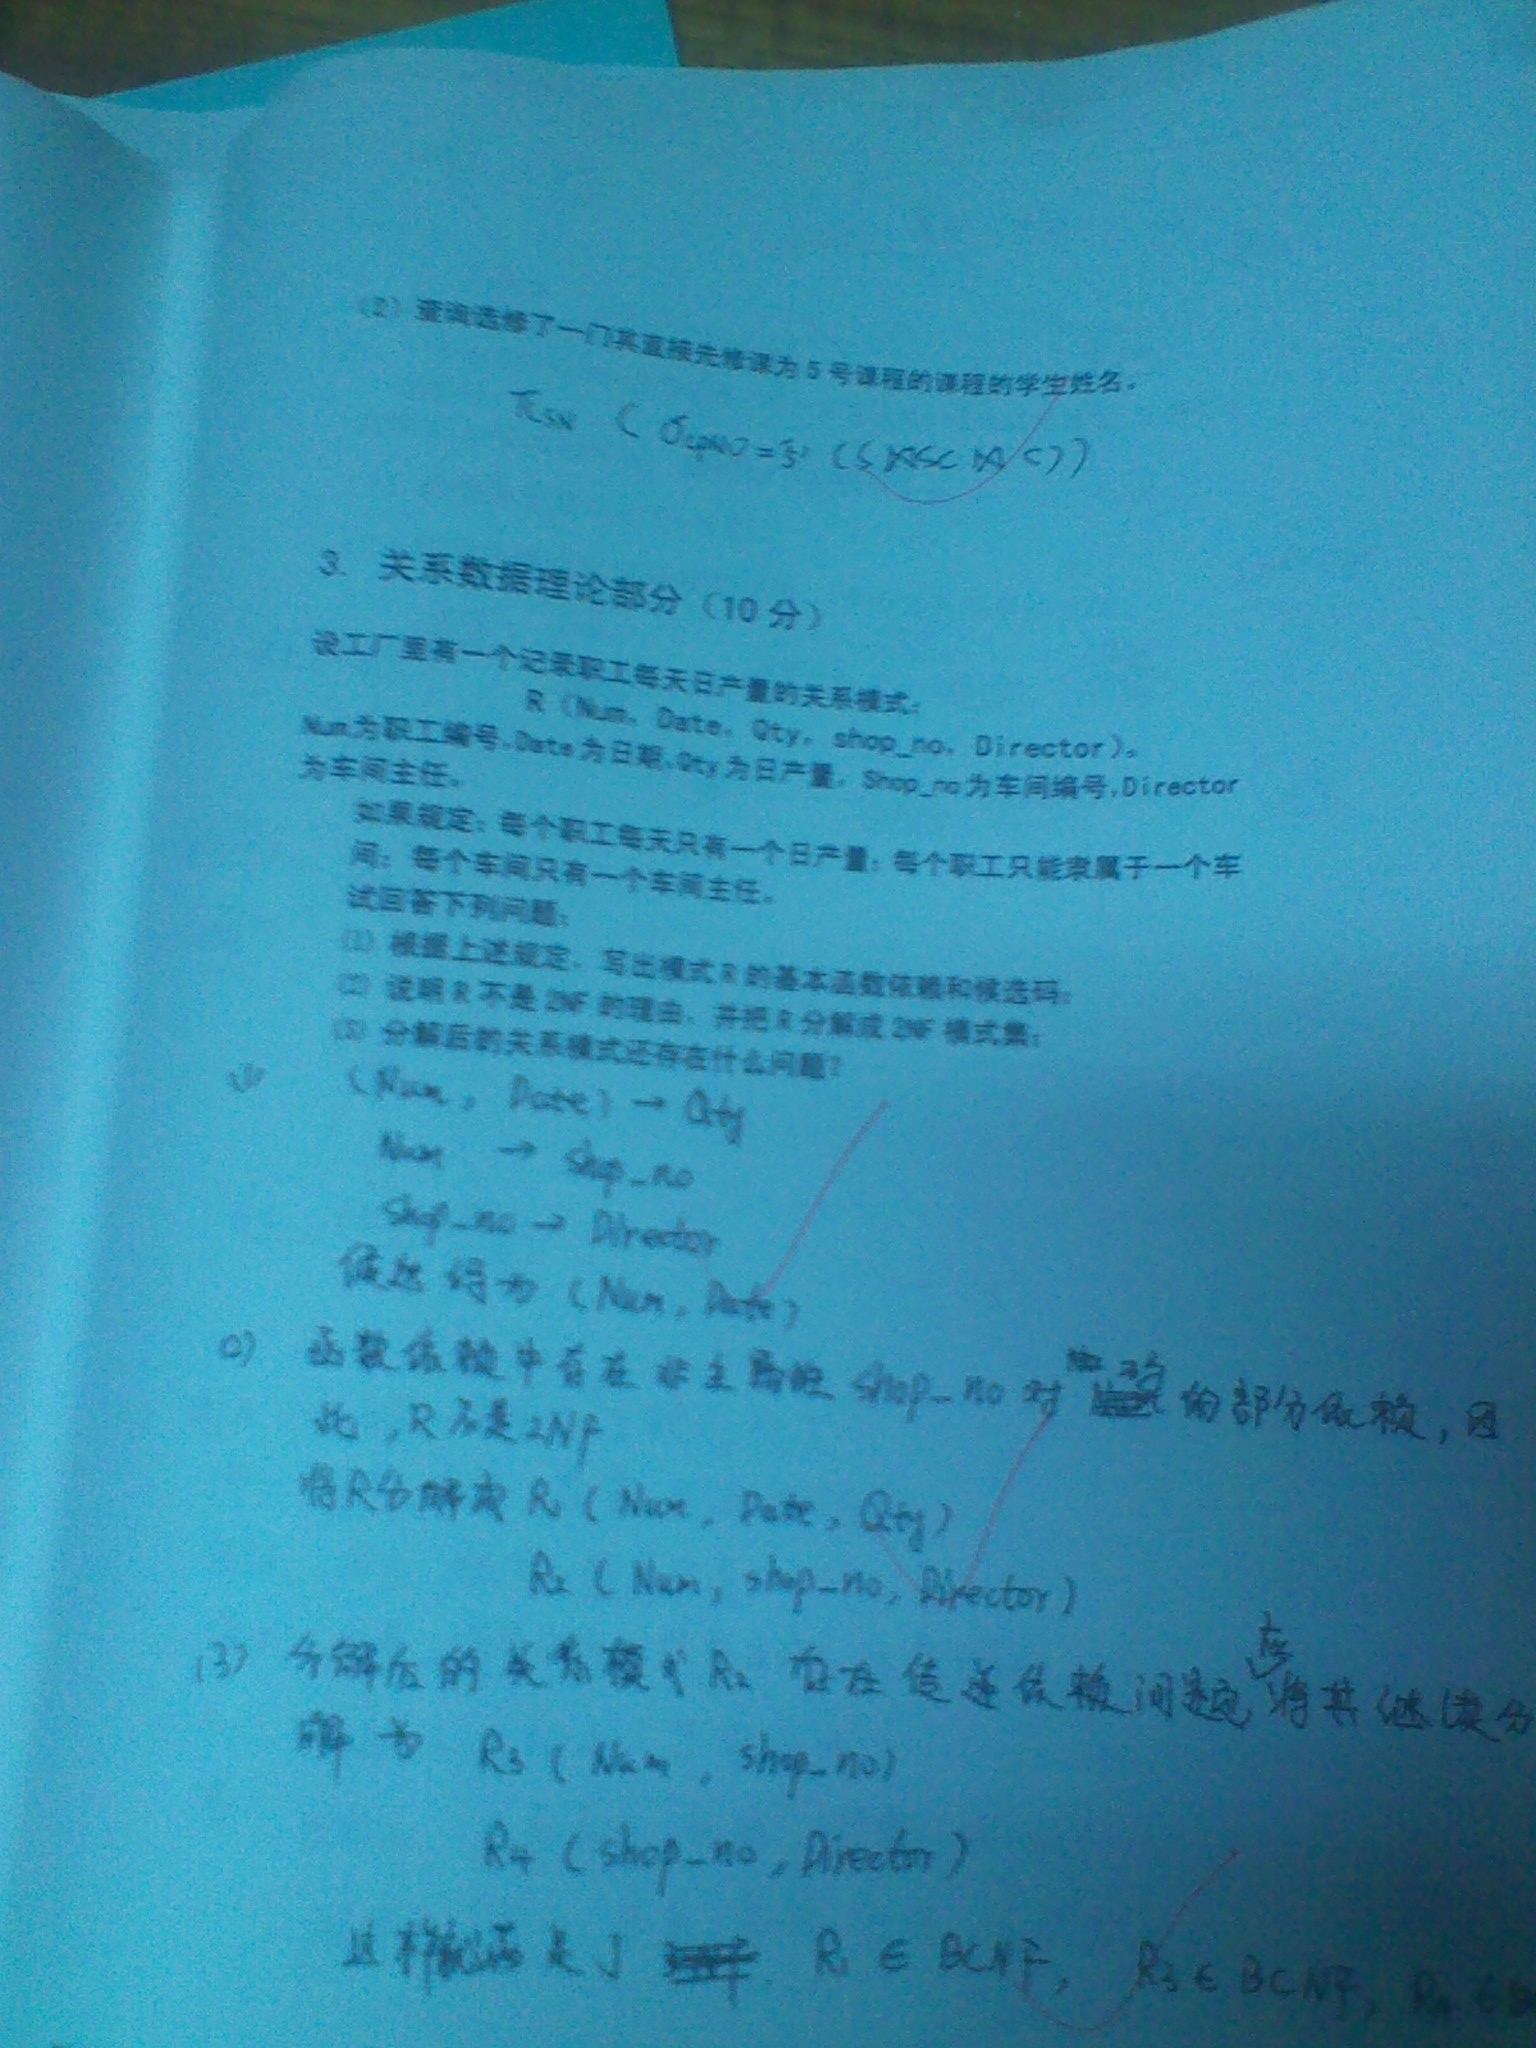 (2) 查询选修了一门其直接先修课为5号课程的课程的学生姓名。
πSN ( σcpno='5' (S⋈SC⋈C))
3. 关系数据理论部分（10分）
设工厂里有一个记录职工每天日产量的关系模式：
R（Num，Date，Qty，shop_no，Director）。
Num为职工编号，Date为日期，Qty为日产量，Shop_no为车间编号，Director
为车间主任。
如果规定：每个职工每天只有一个日产量；每个职工只能隶属于一个车
间；每个车间只有一个车间主任。
试回答下列问题：
(1) 根据上述规定，写出模式R的基本函数依赖和候选码；
(2) 说明R不是2NF的理由，并把R分解成2NF模式集；
(3) 分解后的关系模式还存在什么问题？
(1) (Num, Date) → Qty
Num → shop_no
shop_no → Director
(Num, Date)
(2) 函数依赖中存在非主属性 shop_no 对 的部分依赖，因
此，R不是2NF
将R分解成 R1 (Num, Date, Qty)
R2 (Num, shop_no, Director)
(3) 分解后的关系模式R2 存在传递依赖问题，应将其继续分
解为 R3 (Num, shop_no)
R4 (shop_no, Director)
这样就满足了 R1 ∈ BCNF, R3 ∈ BCNF, R4 ∈